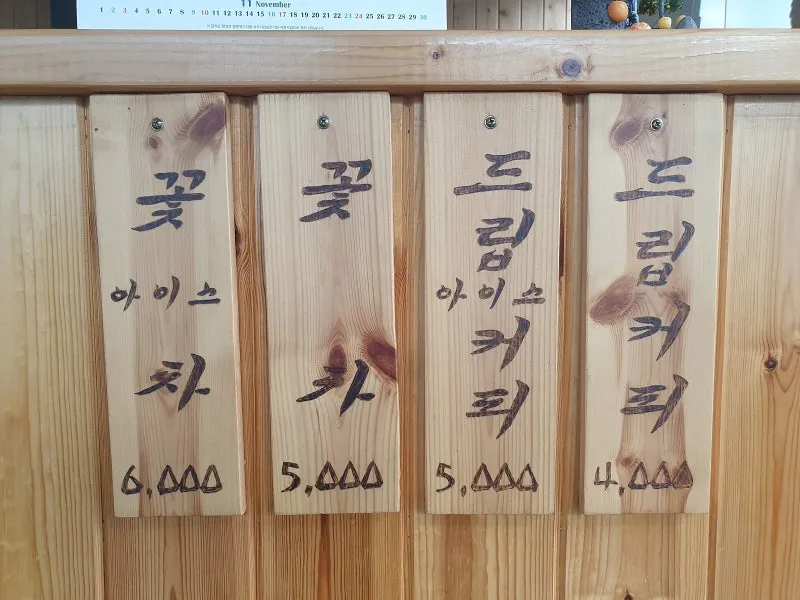 11 November
1 2 3 4 5 6 7 8 9 10 11 12 13 14 15 16 17 18 19 20 21 22 23 24 25 26 27 28 29 30
꽃
아이스
차
6,000
꽃
차
5,000
드
립
아이스
커
피
5,000
드
립
커
피
4,000